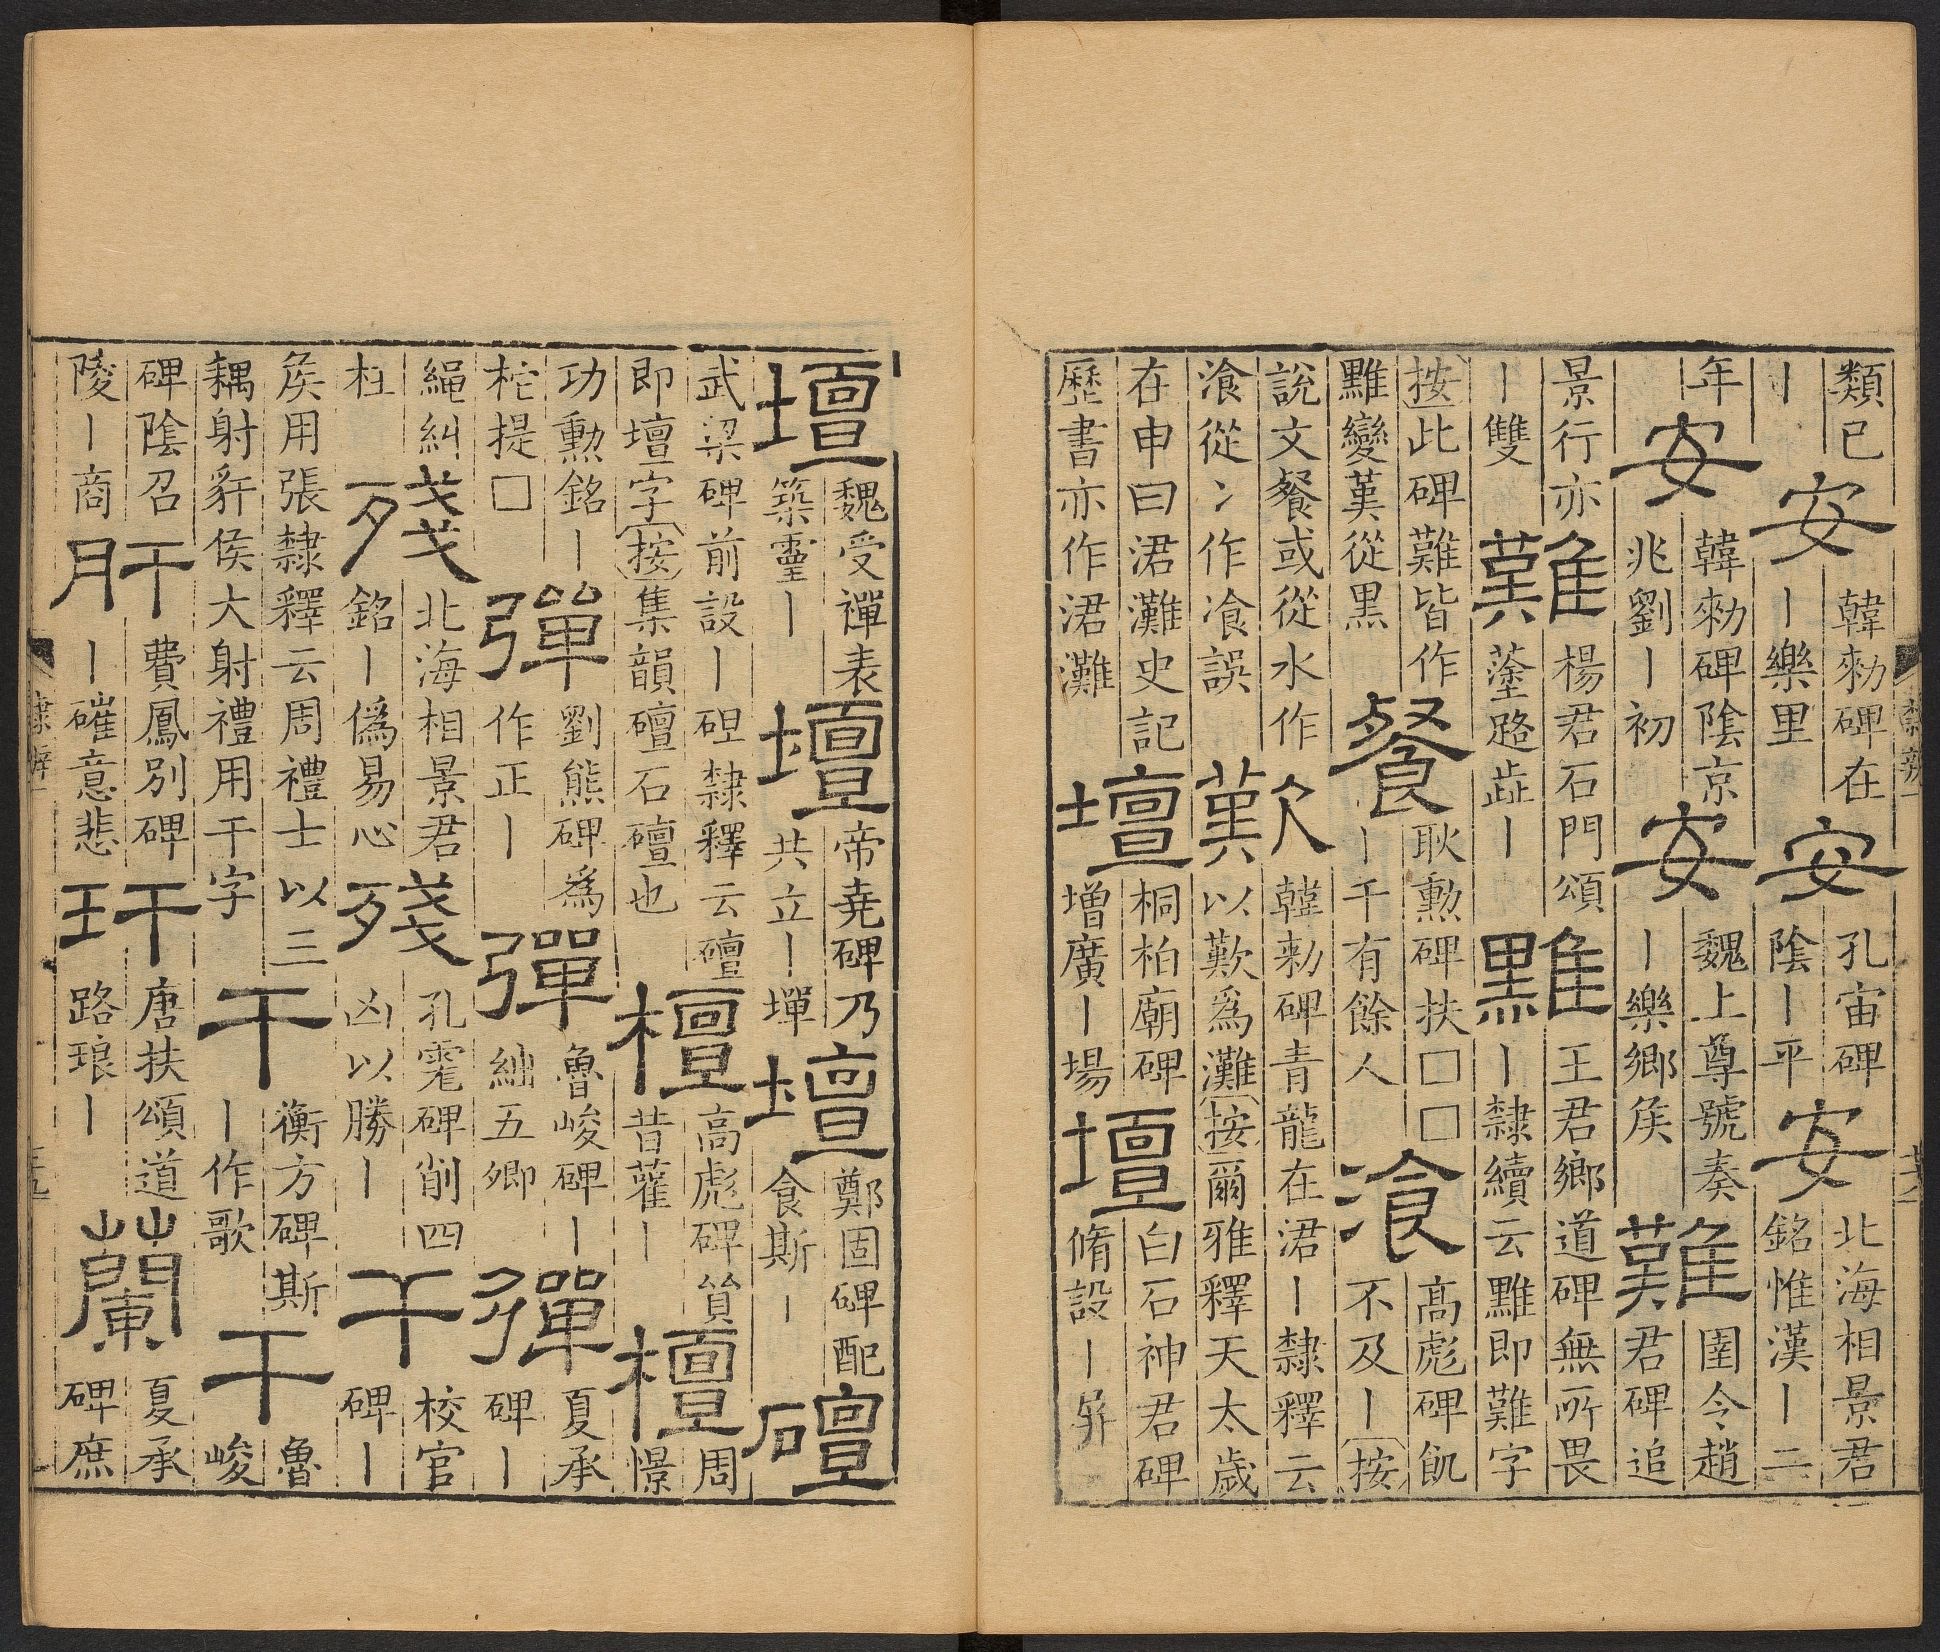 類已丨安韓勑碑在丨樂里安孔宙碑陰丨平安北海相景君銘惟漢丨二
年安韓勑碑陰京兆劉丨初安魏上尊號奏丨樂鄉矦難圉令趙君碑追
景行亦丨雙難楊君石門頌塗路歮丨䵴王君鄉道碑無所畏丨隸續云䵴即難字
按此碑難皆作䵴變𦰩從黑餐耿勳碑扶□□丨千有餘人飡高彪碑飢不及丨按
說文餐或從水作湌從冫作飡誤歎韓勑碑青龍在涒丨隸釋云以歎為灘按爾雅釋天太歲
在申曰涒灘史記歷書亦作涒灘壇桐柏廟碑增廣丨場壇白石神君碑脩設丨屏
壇魏受禪表築靈丨壇帝堯碑乃共立丨墠壇鄭固碑配食斯丨䃪
武梁碑前設丨䂠隸釋云䃪即壇字按集韻䃪石䃪也檀高彪碑貲昔雚丨檀周憬
功勳銘丨柁提□彈劉熊碑為作正丨彈魯峻碑丨絀五卿彈夏承碑丨
繩糾枉殘北海相景君銘丨偽易心殘孔宙碑削四凶以勝丨干校官碑丨
矦用張隸釋云周禮士以三耦射豻侯大射禮用干字干衡方碑斯丨作歌干魯峻
碑陰召陵丨商肝費鳳別碑丨㩁意悲玕唐扶頌道路琅丨蘭夏承碑庶